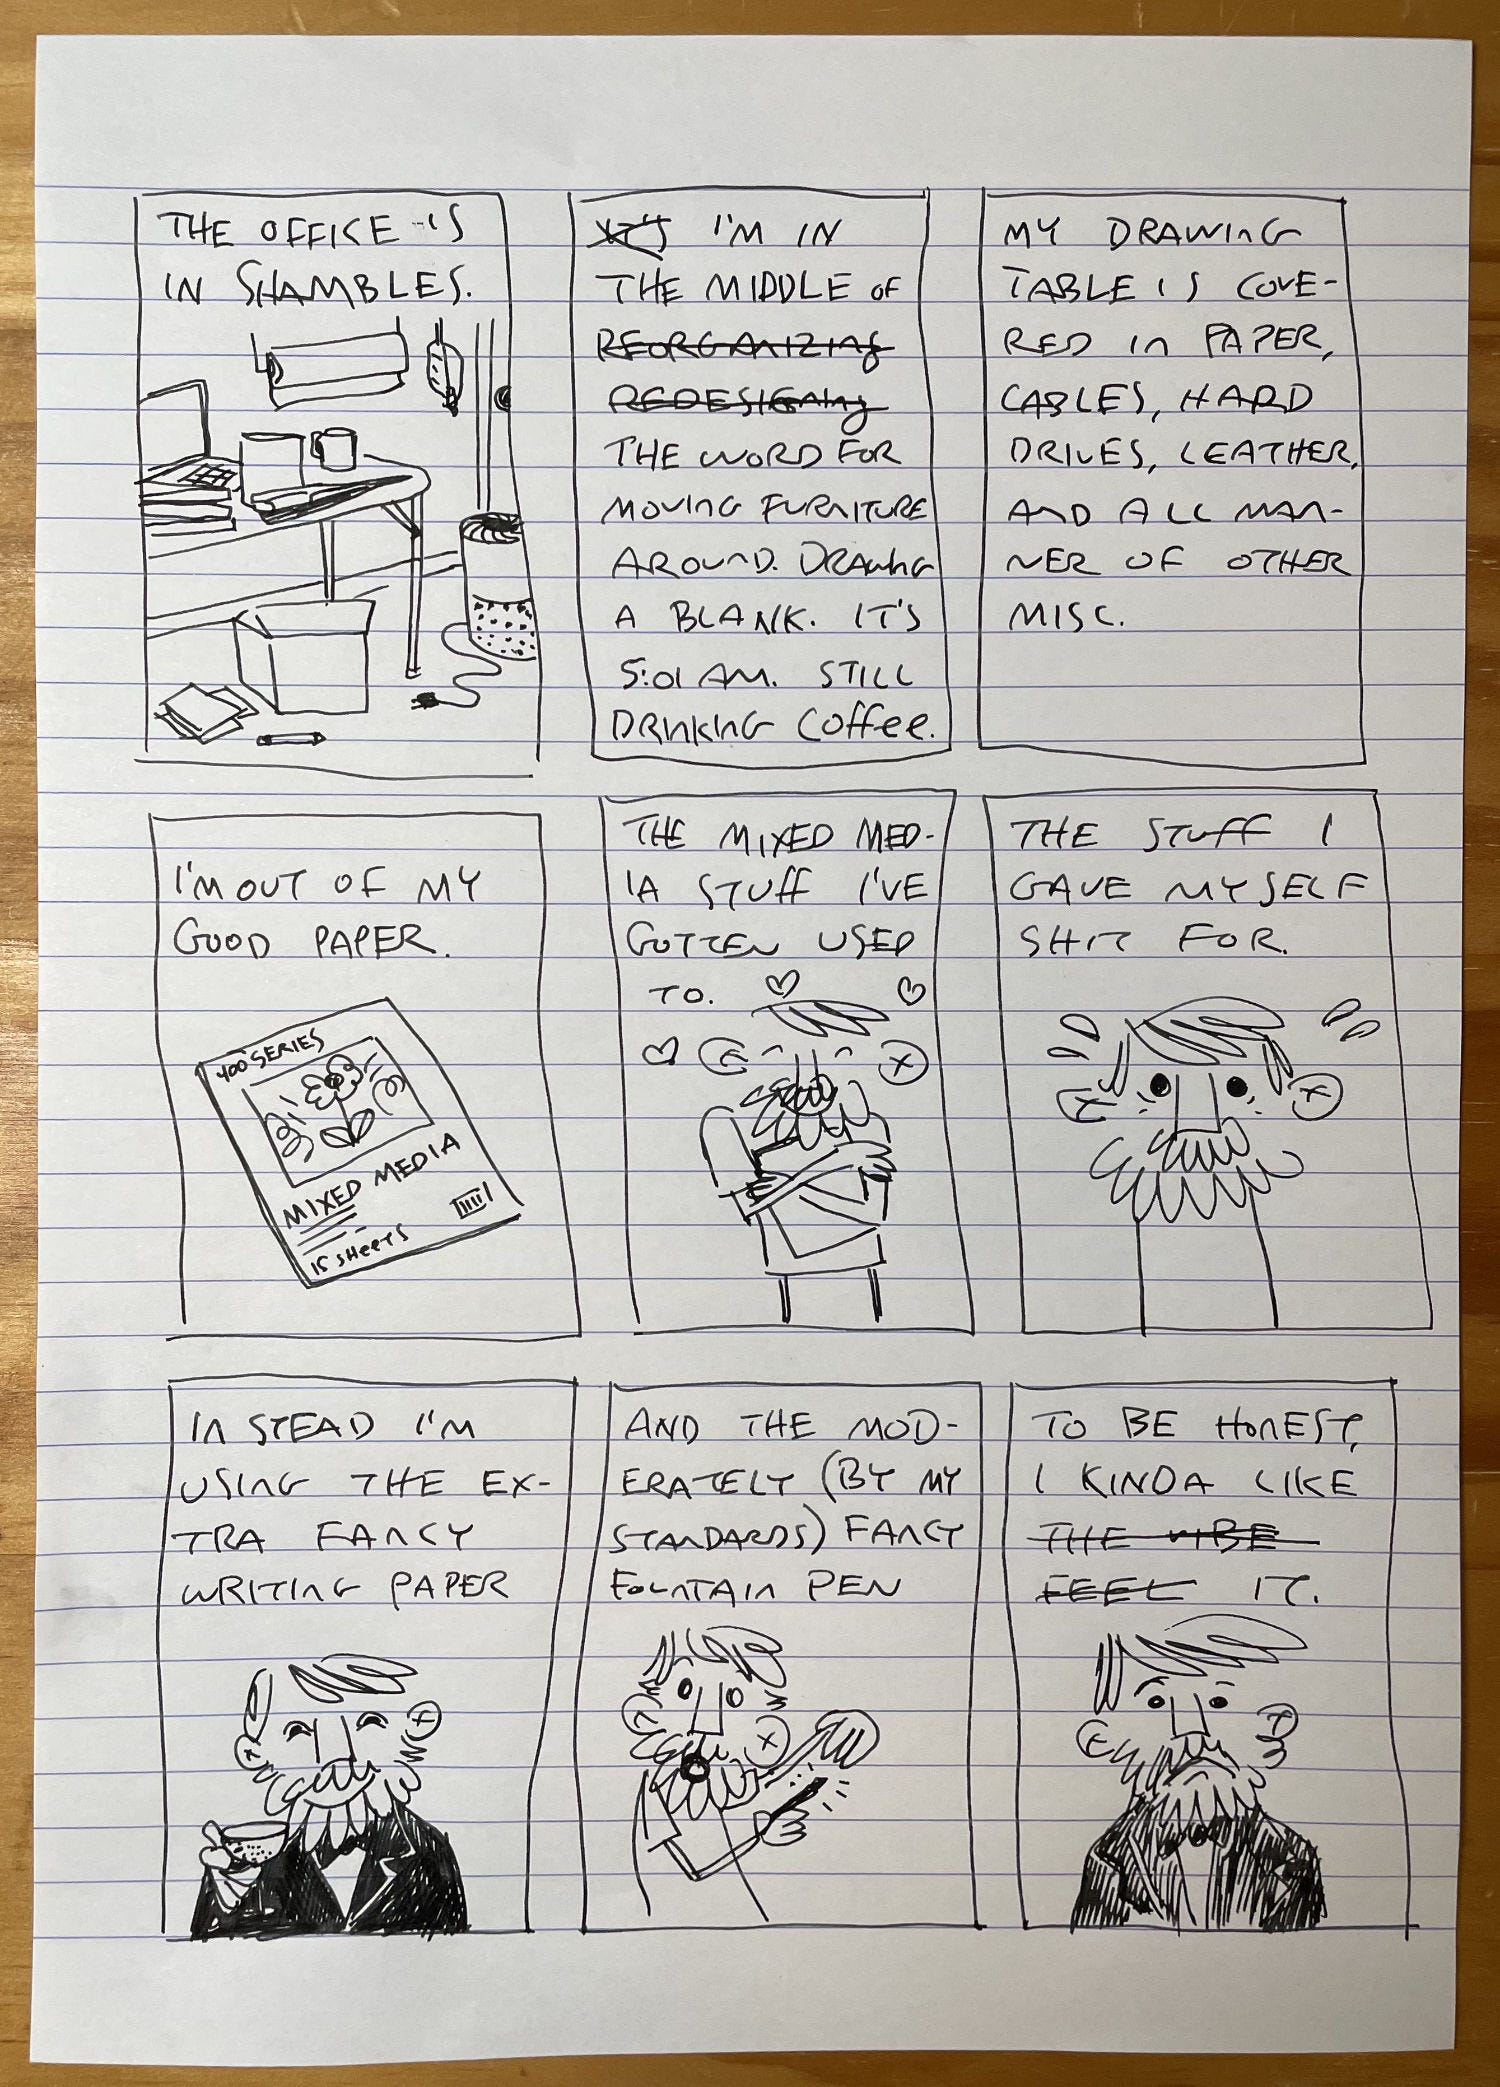 THE OFFICE IS
IN SHAMBLES.
I'M IN
THE MIDDLE OF
REORGANIZING
REDESIGNING
THE WORD FOR
MOVING FURNITURE
AROUND. DRAWING
A BLANK. IT'S
5:01 AM. STILL
DRINKING COFFEE.
MY DRAWING
TABLE IS COVE-
RED IN PAPER,
CABLES, HARD
DRIVES, LEATHER,
AND ALL MAN-
NER OF OTHER
MISC.
I'M OUT OF MY
GOOD PAPER.
400 SERIES
MIXED MEDIA
15 SHEETS
THE MIXED MED-
IA STUFF I'VE
GOTTEN USED
TO.
THE STUFF I
GAVE MYSELF
SHIT FOR.
IN STEAD I'M
USING THE EX-
TRA FANCY
WRITING PAPER
AND THE MOD-
ERATELY (BY MY
STANDARDS) FANCY
FOUNTAIN PEN
TO BE HONEST,
I KINDA LIKE
THE VIBE
FEEL IT.